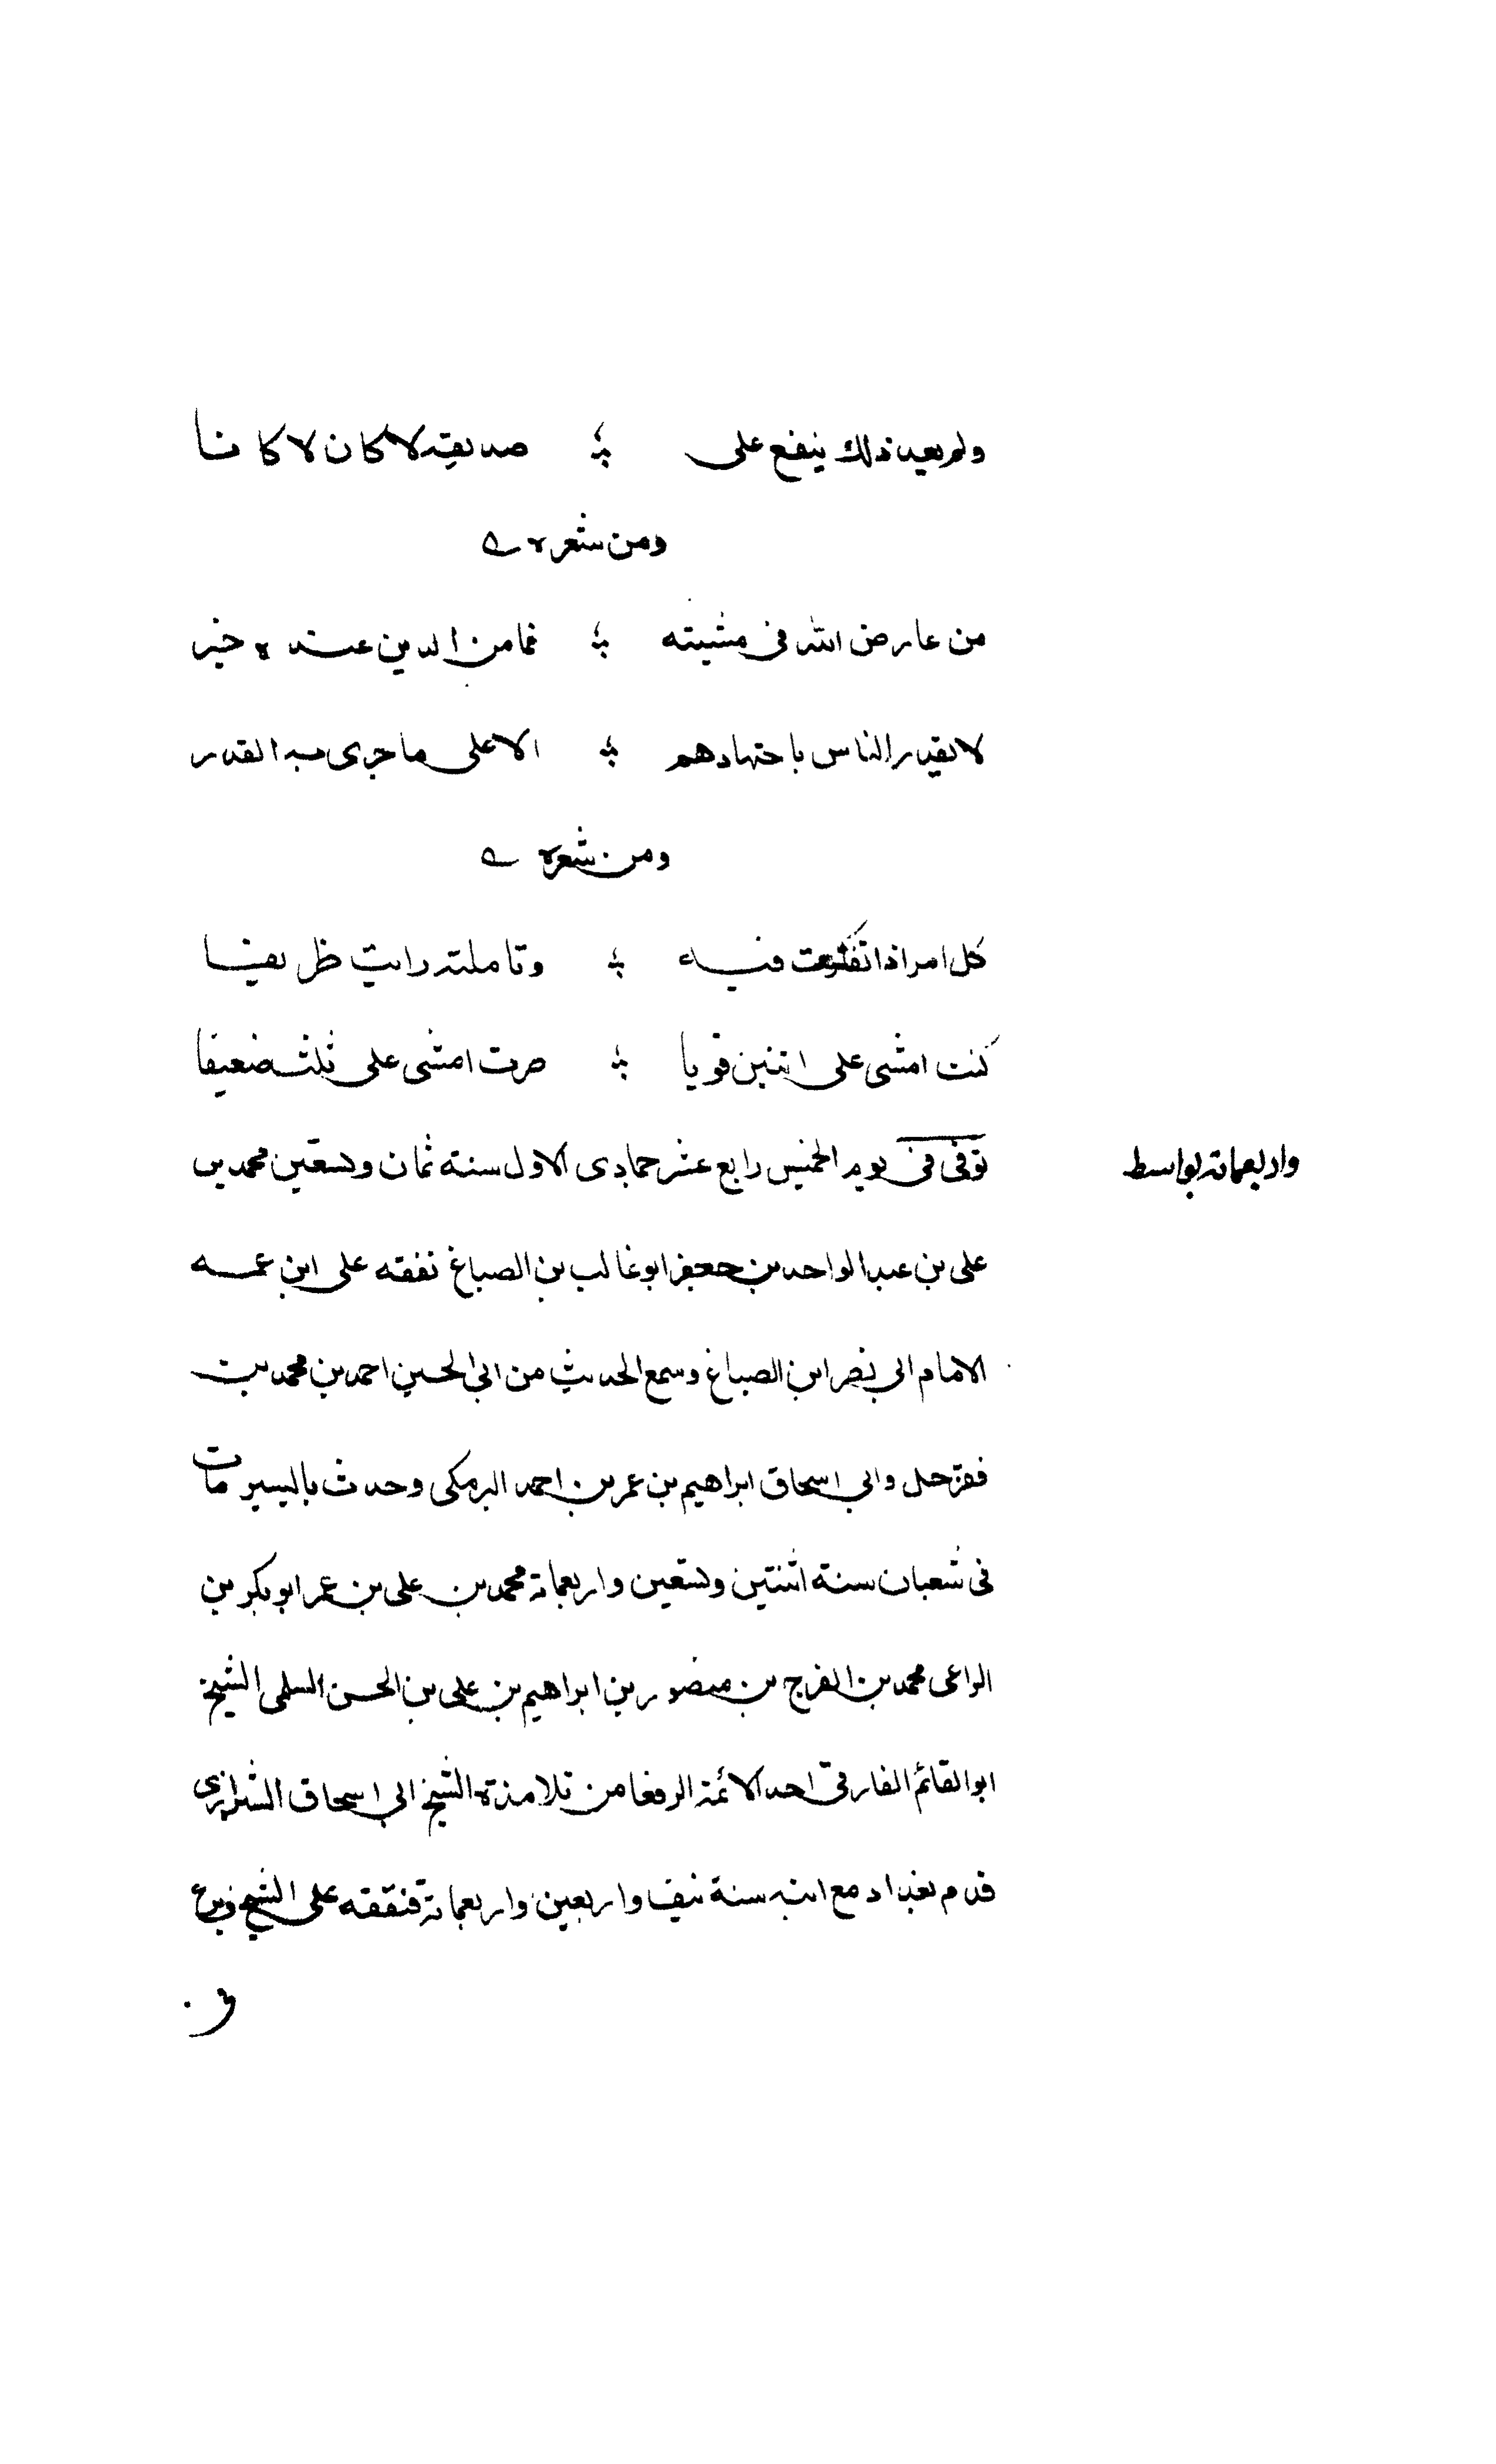 ولم يعد ذلك ينفع على ؞ صديقه لا كان لا كانا
ومن شعره
من عارض الله فى مشيته ؞ فما من الدين عنده خبر
لا يقدر الناس باجتهادهم ؞ الا على ما جرى به القدر
ومن شعره
كل امر اذا تفكرت فيه ؞ وتاملته رايت ظريفا
كنت امشى على اثنين قويا ؞ صرت امشى على ثلث ضعيفا
توفى فى يوم الخميس رابع عشر جمادى الاول سنة ثمان وتسعين محمد بن
واربعمائة بواسط
على بن عبد الواحد بن جعفر ابو غالب بن الصباغ تفقه على ابن عمه
الامام ابى نصر ابن الصباغ وسمع الحديث من ابى الحسين احمد بن محمد بن
وابى اسحاق ابراهيم بن عمر بن احمد البرمكى وحدث باليسير مات
فى شعبان سنة اثنتين وتسعين واربعمائة محمد بن على بن عمر ابو بكر بن
الراعى محمد بن الفرج بن منصور بن ابراهيم بن على بن الحسن السلمى الشيخ
ابو القائم الفارقى احد الائمة الرفعا من تلامذة الشيخ ابى اسحاق الشيرازى
قدم بغداد مع ابنه سنة نيف واربعين واربعمائة فتفقه على الشيخ وبرع